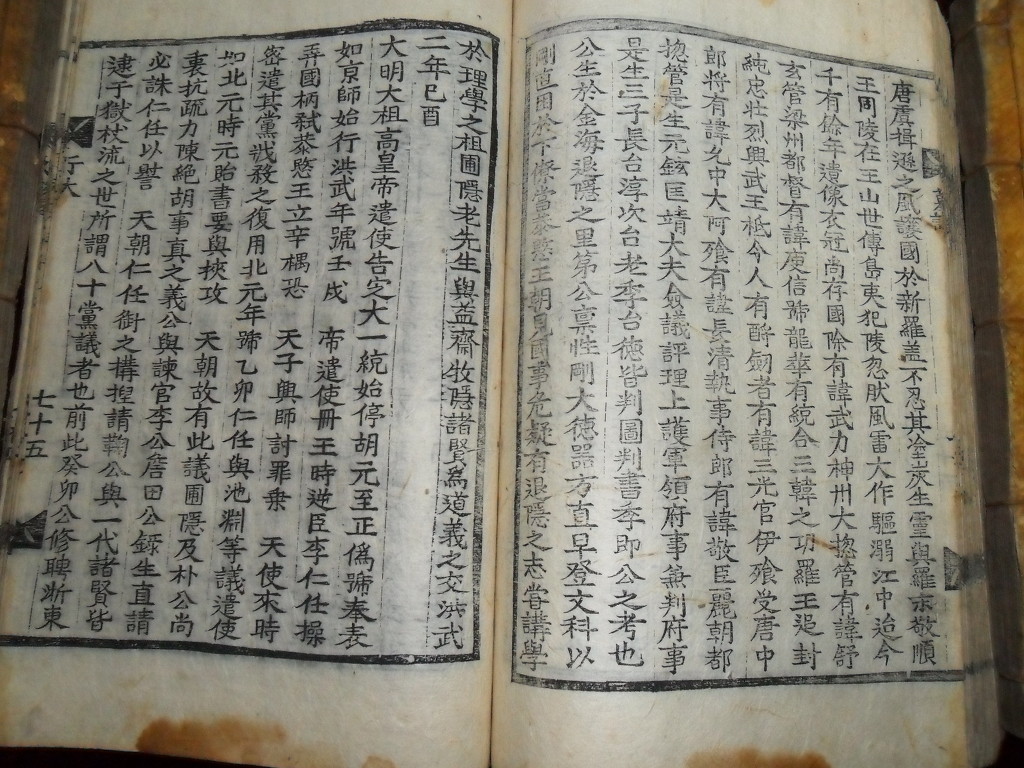 唐虞揖遜之風護國於新羅盖不忍其塗炭生靈與羅京敬順
王同陵在王山世傳島夷犯陵忽肰風雷大作驅溺江中迨今
千有餘年遺像衣冠尚存國除有諱武力神州大揔管有諱舒
玄管梁州都督有諱庾信號龍華有統合三韓之功羅王追封
純忠壯烈興武王柢今人有酹劒者有諱三光官伊飱受唐中
郎將有諱允中大阿飱有諱長清執事侍郎有諱敬臣麗朝都
揔管是生元鉉匡靖大夫僉議評理上護軍領府事兼判府事
是生三子長台淳次台老季台德皆判圖判書季即公之考也
公生於金海退隱之里第公禀性剛大德器方直早登文科以
剛直困於下僚當恭愍王朝見國事危疑有退隱之志嘗講學
於理學之祖圃隱老先生與益齋牧隱諸賢爲道義之交洪武
二年己酉
大明太祖高皇帝遣使告定大一統始停胡元至正僞號奉表
如京師始行洪武年號壬戌 帝遣使冊王時逆臣李仁任操
弄國柄弑恭愍王立辛禑恐 天子興師討罪乗 天使來時
密遣其黨戕殺之復用北元年號乙卯仁任與池渊等議遣使
如北元時元貽書要與挾攻 天朝故有此議圃隱及朴公尚
衷抗疏力陳絕胡事真之義公與諫官李公詹田公錄生直請
必誅仁任以謦 天朝仁任銜之搆揑請鞫公與一代諸賢皆
逮于獄杖流之世所謂八十黨議者也前此癸卯公修聘浙東
行大
七十五